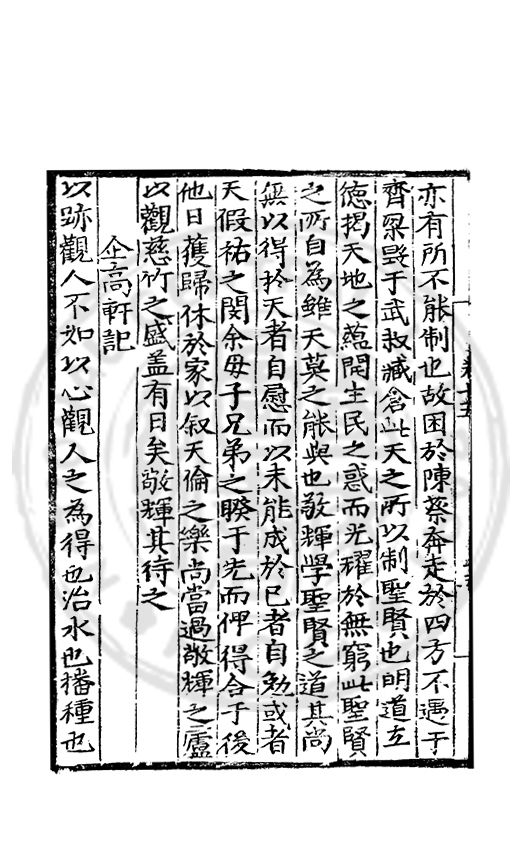 亦有所不能制也故困於陳蔡奔走於四方不遇于
齊梁毀于武叔臧倉此天之所以制聖賢也明道立
德揭天地之蘊開生民之惑而光耀於無窮此聖賢
之所自為雖天莫之能與也敬輝學聖賢之道其尚
無以得於天者自慰而以未能成於已者自勉或者
天假祐之閔余母子兄弟之睽于先而俾得合于後
他日獲歸休於家以叙天倫之樂尚當過敬輝之廬
以觀慈竹之盛盖有日矣敬輝其待之
企高軒記
以跡觀人不如以心觀人之為得也治水也播種也